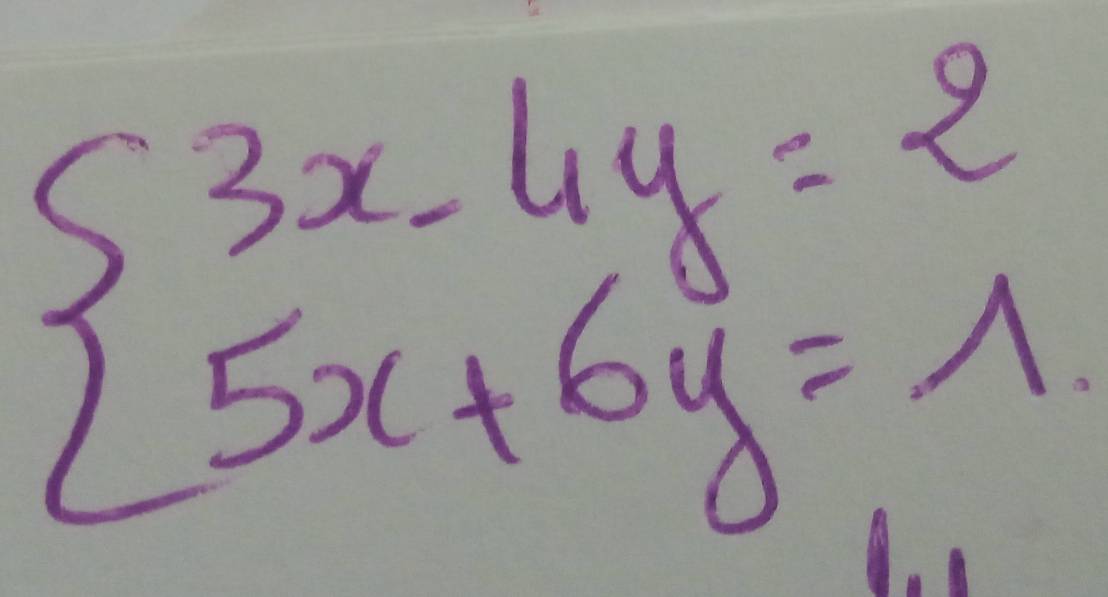 3x - 4y = 2
5x + 6y = 1.